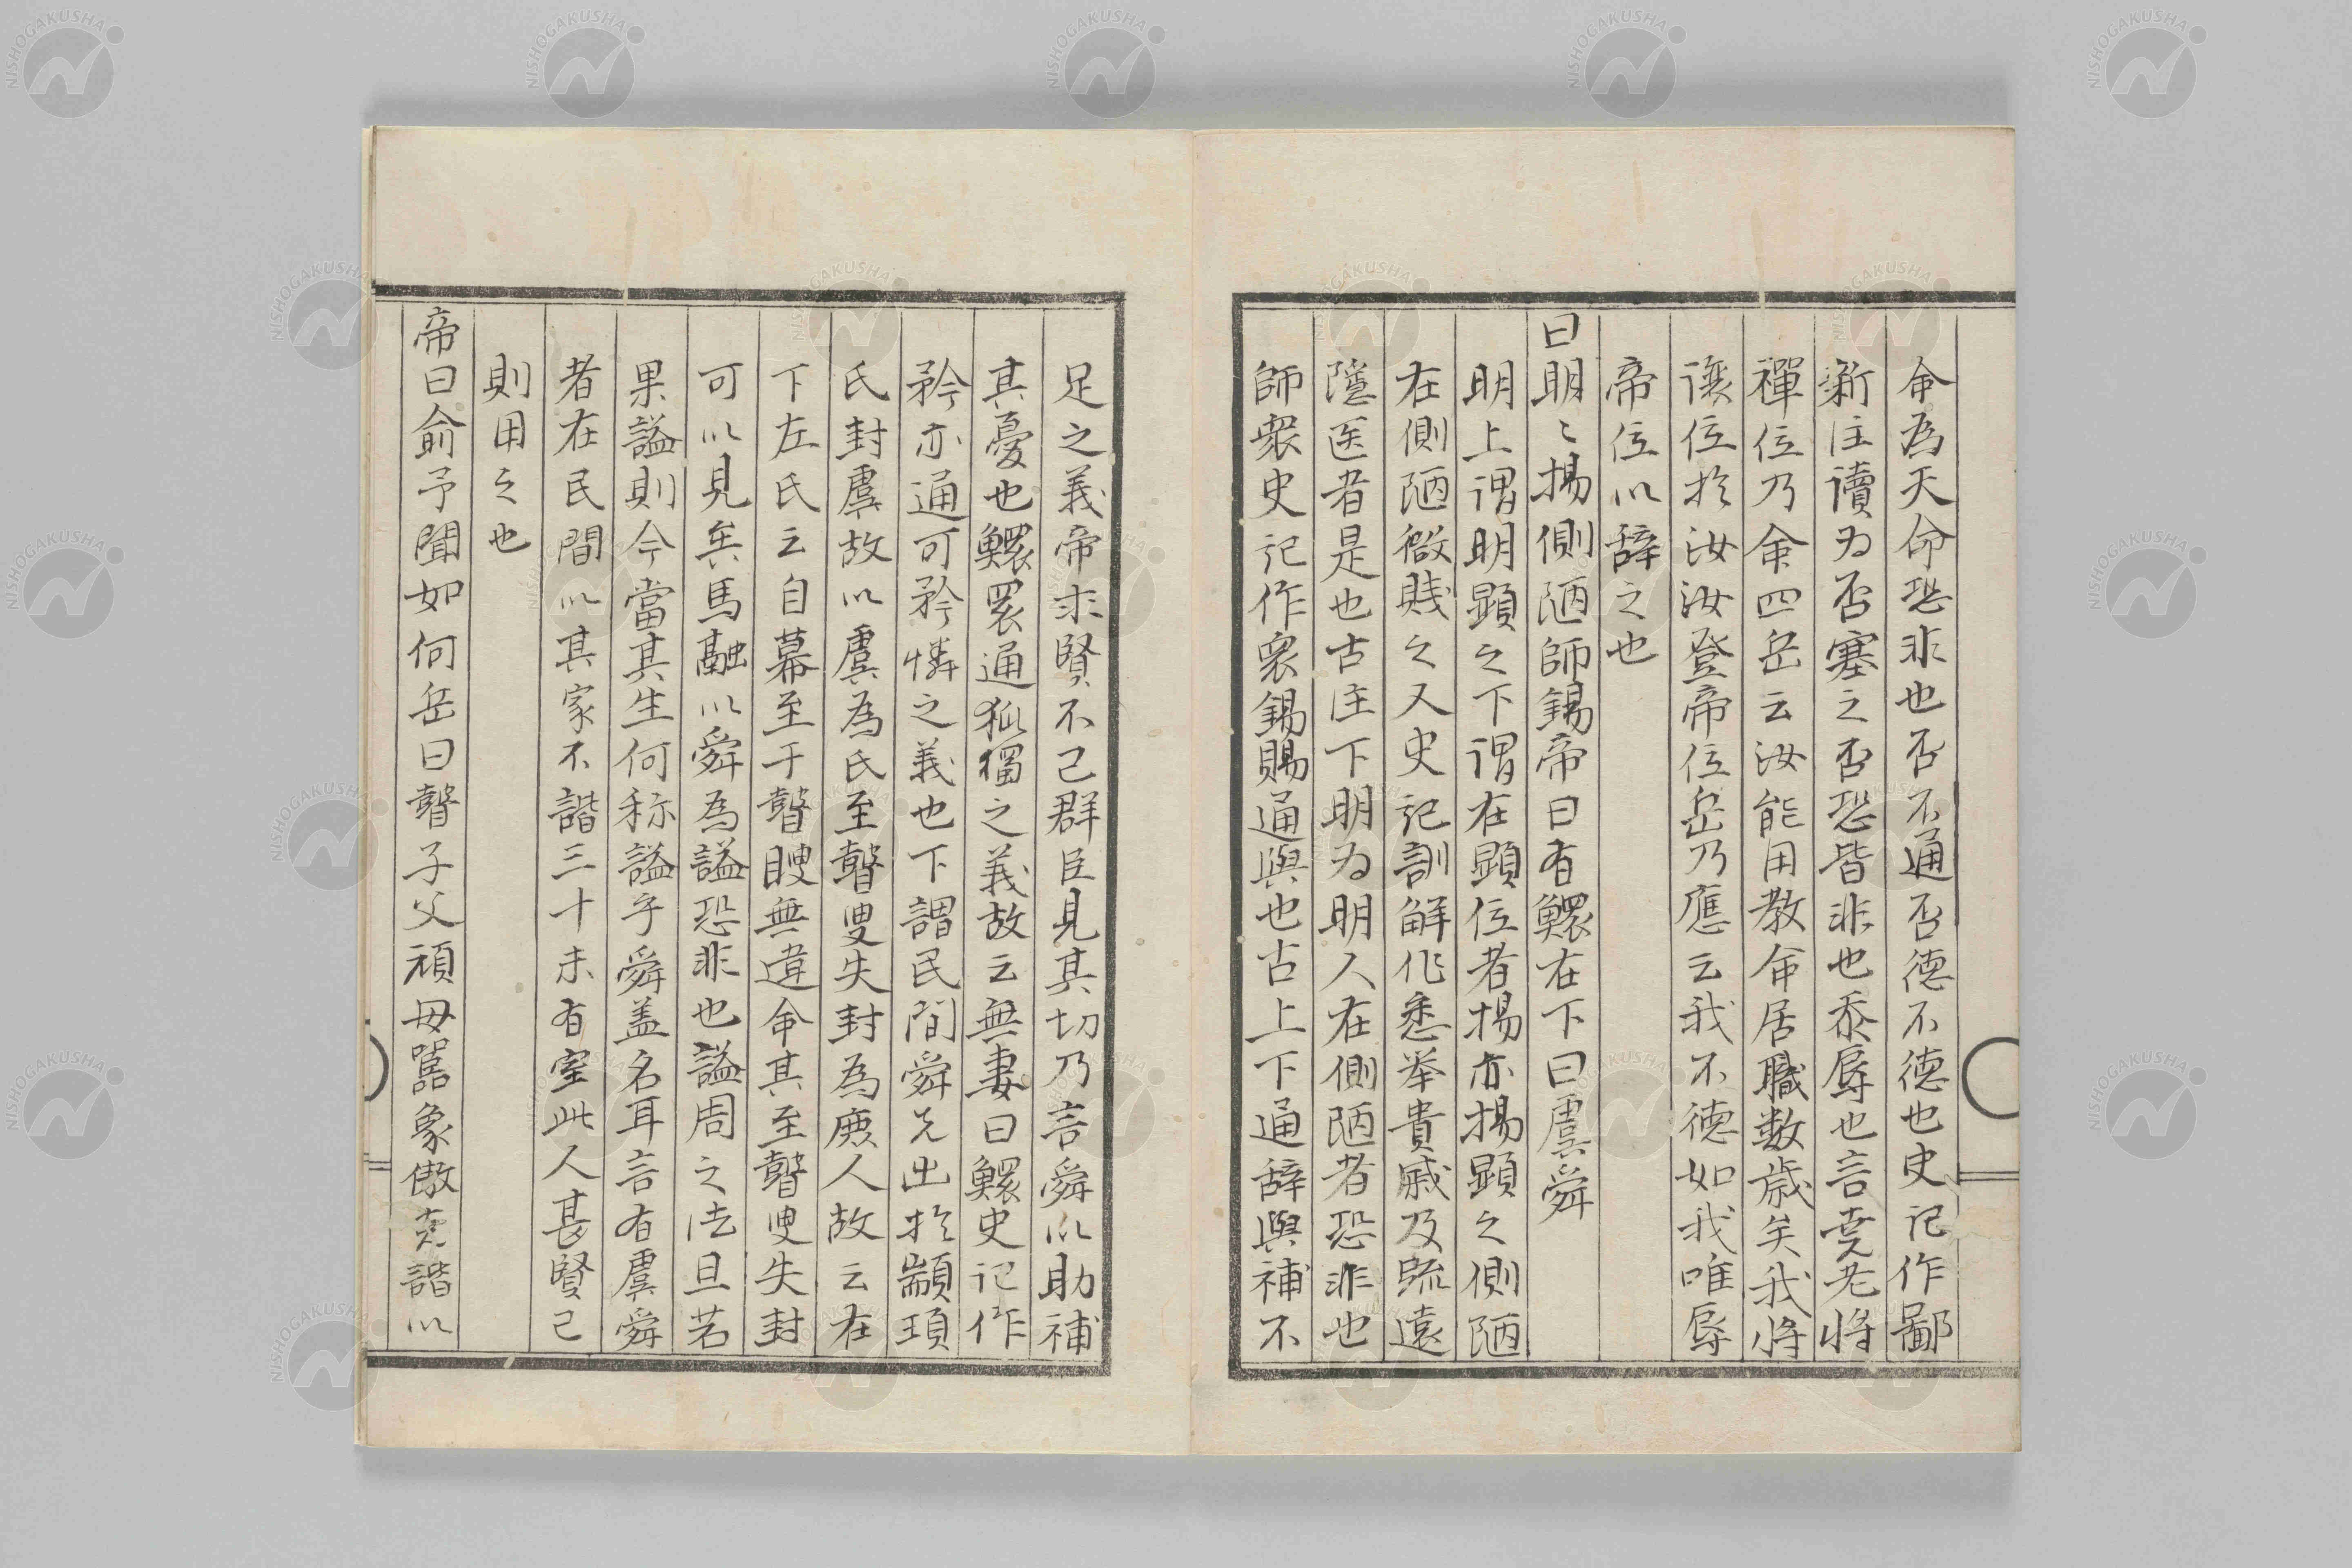 命為天命恐非也否不通否德不德也史記作鄙
新注讀为否塞之否恐皆非也忝辱也言堯老将
禪位乃命四岳云汝能用教命居職数歳矣我将
譲位於汝汝登帝位岳乃應云我不德如我唯辱
帝位以辞之也
曰明〻揚側陋師錫帝曰有鰥在下曰虞舜
明上谓明顕之下谓在顕位者揚亦揚顕之側陋
在側陋微賎之人史記訓解作悉挙貴戚及疏遠
隠匿者是也古注下明为明人在側陋者恐非也
師衆史記作衆錫賜通與也古上下通辞與補不
足之義帝求賢不已群臣見其切乃言舜以助補
其憂也鰥罤通孤獨之義故云無妻曰鰥史記作
矜亦通可矜憐之義也下謂民間舜先出於顓頊
氏封虞故以虞為氏至瞽叟失封為庶人故云在
下左氏云自幕至于瞽瞍無違命其至瞽叟失封
可以見矣馬融以舜為謚恐非也謚周之法且若
果謚則今當其生何称謚乎舜盖名耳言有虞舜
者在民間以其家不諧三十未有室此人甚賢已
則用之也
帝曰俞予聞如何岳曰瞽子父頑母嚚象傲克諧以
NISHOGAKUSHA